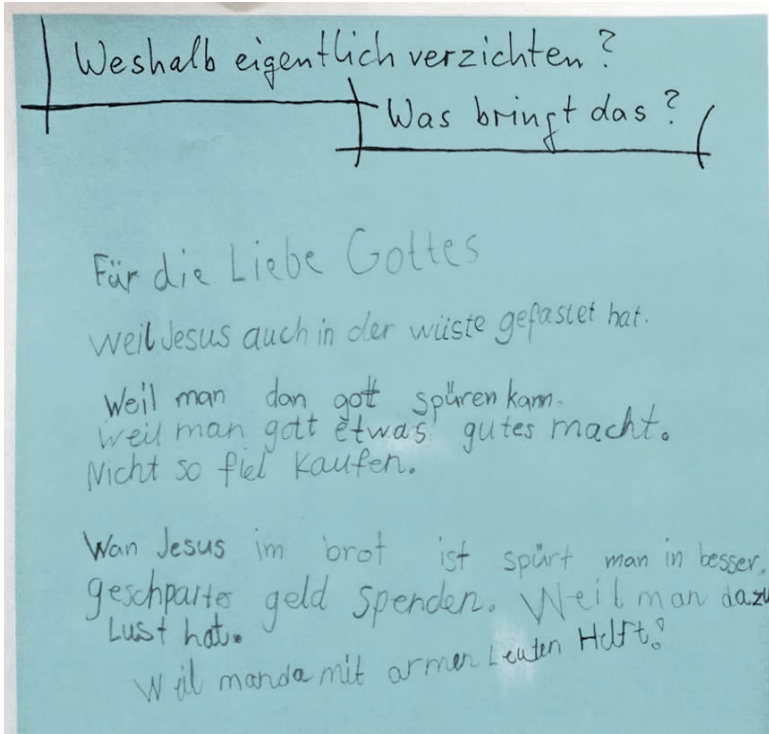 Weshalb eigentlich verzichten?
Was bringt das?
Für die Liebe Gottes
weil Jesus auch in der wüste gefastet hat.
Weil man dan gott spüren kann.
weil man gott etwas gutes macht.
Nicht so fiel kaufen.
Wan Jesus im brot ist spürt man in besser.
geschpartes geld spenden. Weil man dazu
Lust hat.
Weil manda mit armen Leuten Helft!